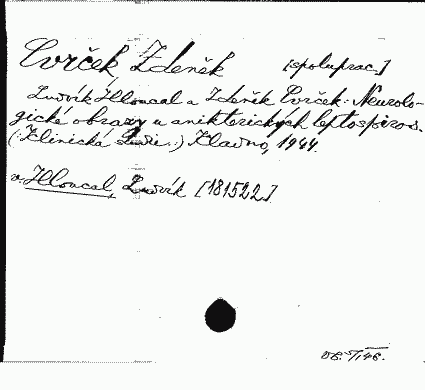 Cvrček, Zdeněk [spoluprac.]
Ludvík Hloucal a Zdeněk Cvrček: Neurolo-
gické obrazy u anikterických leptospiros.
(: Klinická :) Kladno, 1944.
v. Hloucal, Ludvík [181522]